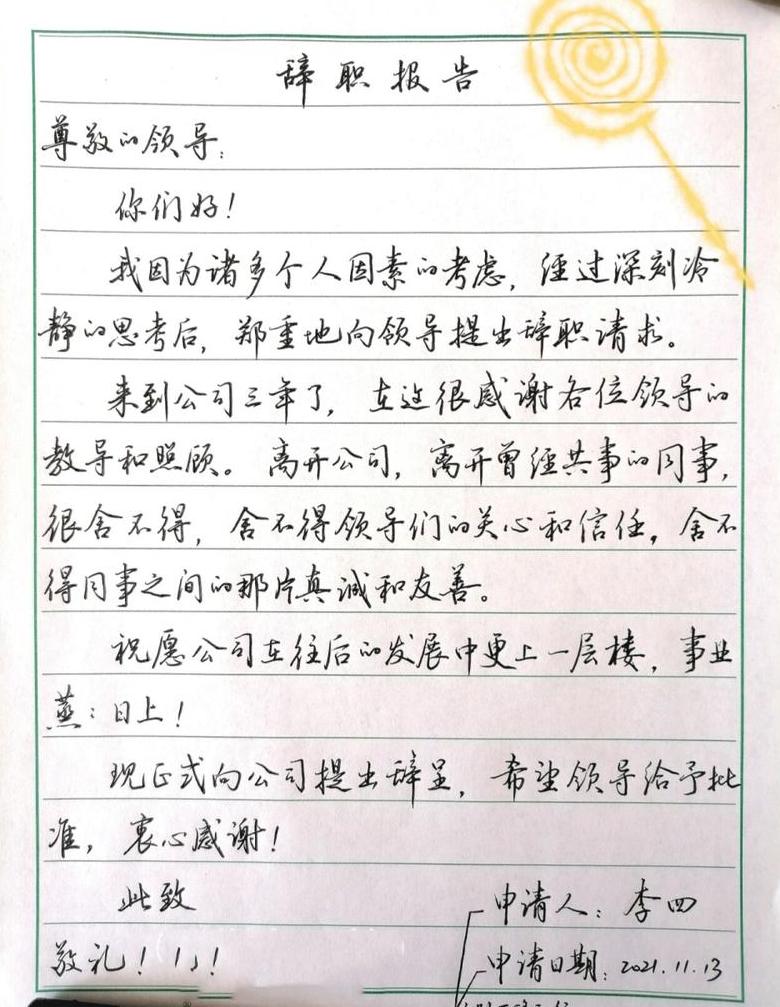 辞职报告
尊敬的领导:
你们好!
我因为诸多个人因素的考虑,经过深刻冷
静的思考后,郑重地向领导提出辞职请求。
来到公司三年了,在这很感谢各位领导的
教导和照顾。离开公司,离开曾经共事的同事,
很舍不得,舍不得领导们的关心和信任,舍不
得同事之间的那片真诚和友善。
祝愿公司在往后的发展中更上一层楼,事业
蒸:日上!
现正式向公司提出辞呈,希望领导给予批
准,衷心感谢!
此致
敬礼!
申请人:李四
申请日期:2021.11.13